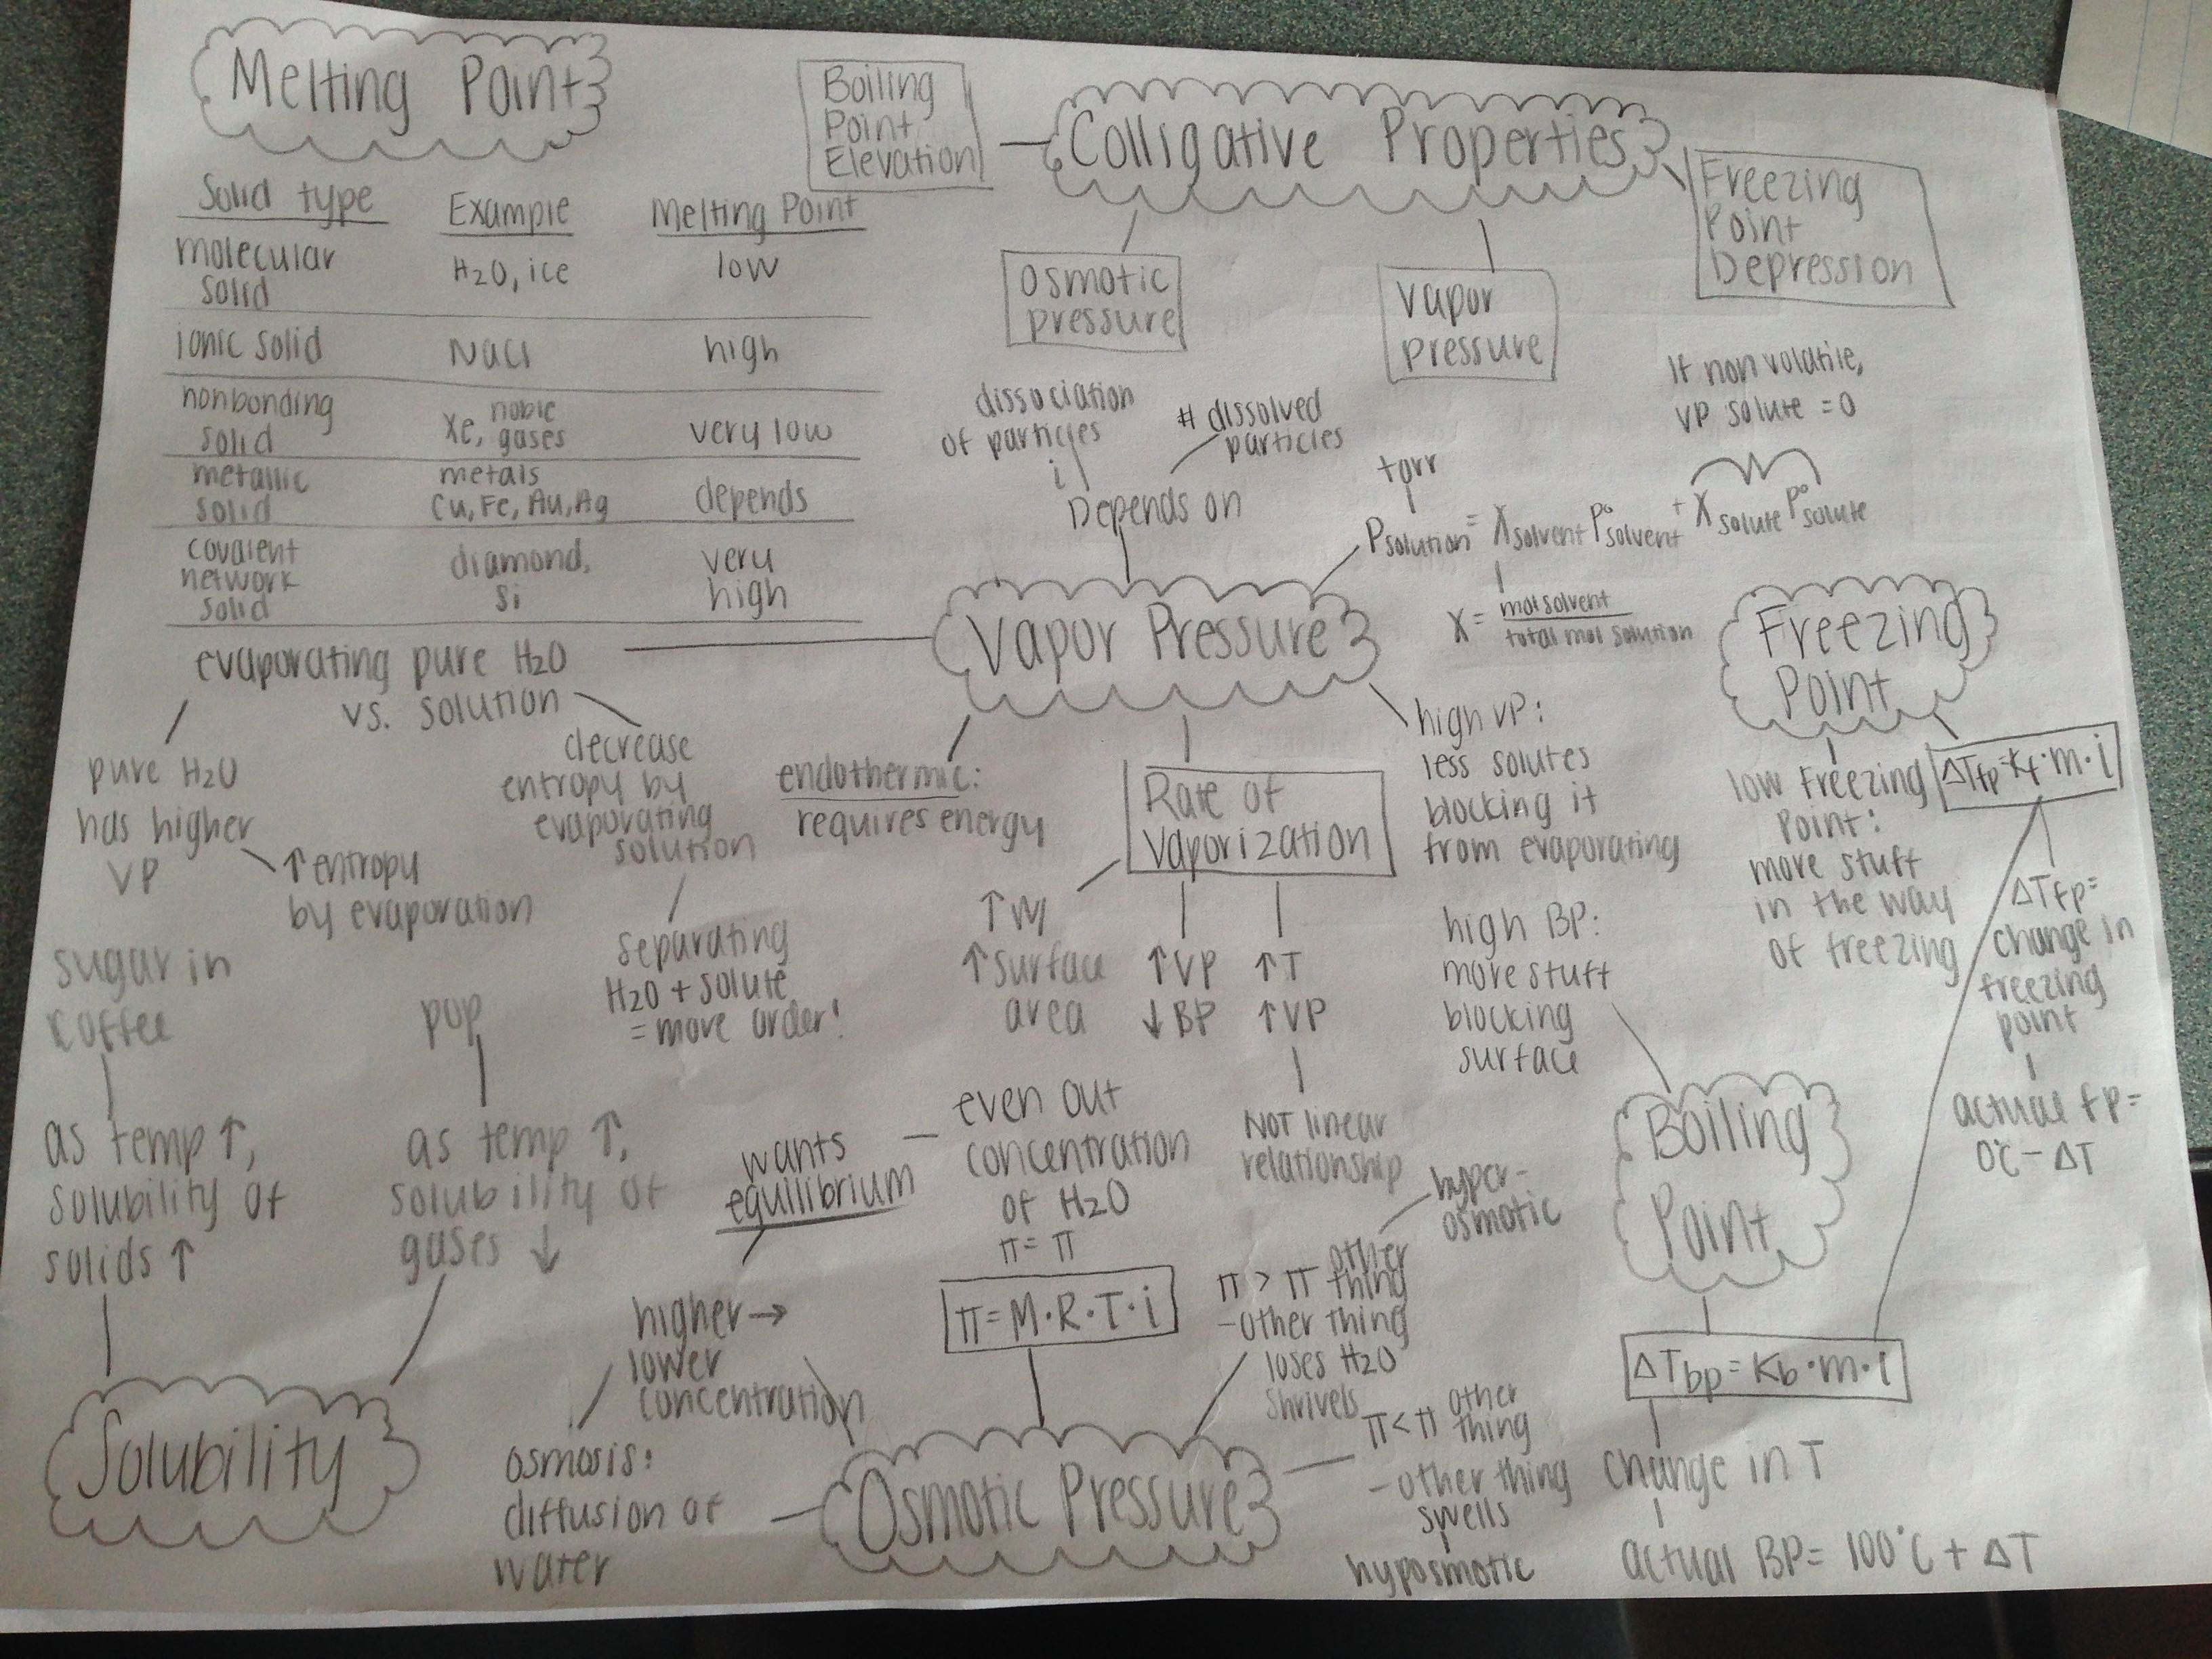 Melting Point
Solid type Example Melting Point
molecular
solid
H2O, ice
low
ionic solid NaCl high
nonbonding
solid
Xe, noble
gases
very low
metallic
solid
metals
Cu, Fe, Au, Ag
depends
covalent
network
solid
diamond,
Si
very
high
Boiling
Point
Elevation
Colligative Properties
Freezing
Point
Depression
Osmotic
pressure
Vapor
pressure
dissociation
of particles
i
# dissolved
particles
Depends on
If non volatile,
VP solute = 0
torr
Psolution = Xsolvent P°solvent + Xsolute P°solute
X = mol solvent
total mol solution
Vapor Pressure
evaporating pure H2O
vs. solution
pure H2O
has higher
VP
↑ entropy
by evaporation
decrease
entropy by
evaporating
solution
separating
H2O + solute
= more order!
endothermic:
requires energy
Rate of
Vaporization
↑ w/
↑ surface
area
↑ VP
↓ BP
↑ T
↑ VP
NOT linear
relationship
high VP:
less solutes
blocking it
from evaporating
high BP:
more stuff
blocking
surface
Freezing
Point
low Freezing
Point:
more stuff
in the way
of freezing
ΔTfp = Kf · m · i
ΔTfp =
change in
freezing
point
actual fp =
0°C - ΔT
Boiling
Point
ΔTbp = Kb · m · i
change in T
actual BP = 100°C + ΔT
sugar in
coffee
as temp ↑,
solubility of
solids ↑
pop
as temp ↑,
solubility of
gases ↓
Solubility
wants
equilibrium
even out
concentration
of H2O
π = π
higher →
lower
concentration
osmosis:
diffusion of
water
π = M · R · T · i
Osmotic Pressure
hyper-
osmotic
π > π other
thing
- other thing
loses H2O
shrivels
π < π other
thing
- other thing
swells
hyposmotic